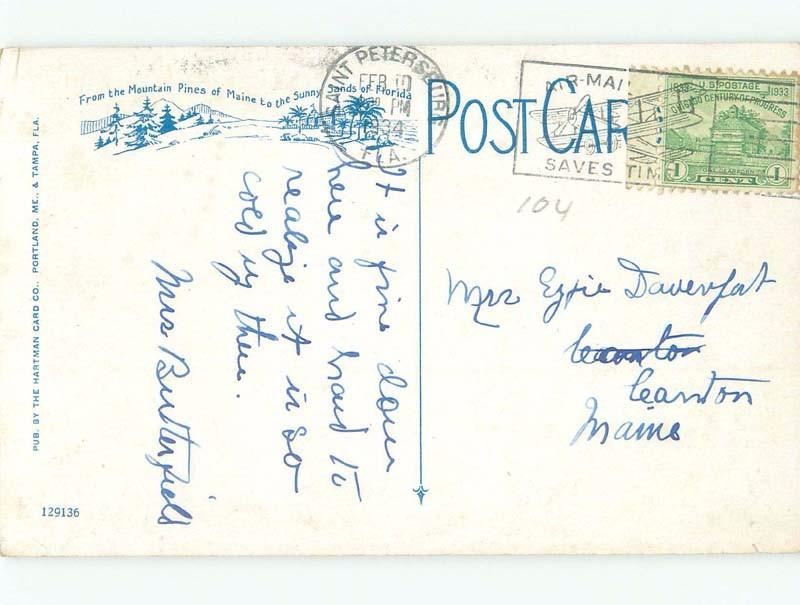 From the Mountain Pines of Maine to the Sunny Sands of Florida
SAINT PETERSBURG
FEB 10
PM
1934
FLA.
POST CAR
AIR-MAI
SAVES TIM
U.S. POSTAGE
1833 1933
CHICAGO CENTURY OF PROGRESS
FORT DEARBORN
1 CENT 1
104
It is fine down
here and hard to
realize it is so
cold up there.
Mrs Butterfield
Mrs Davenport
Canton
Canton
Maine
PUB. BY THE HARTMAN CARD CO., PORTLAND, ME., & TAMPA, FLA.
129136